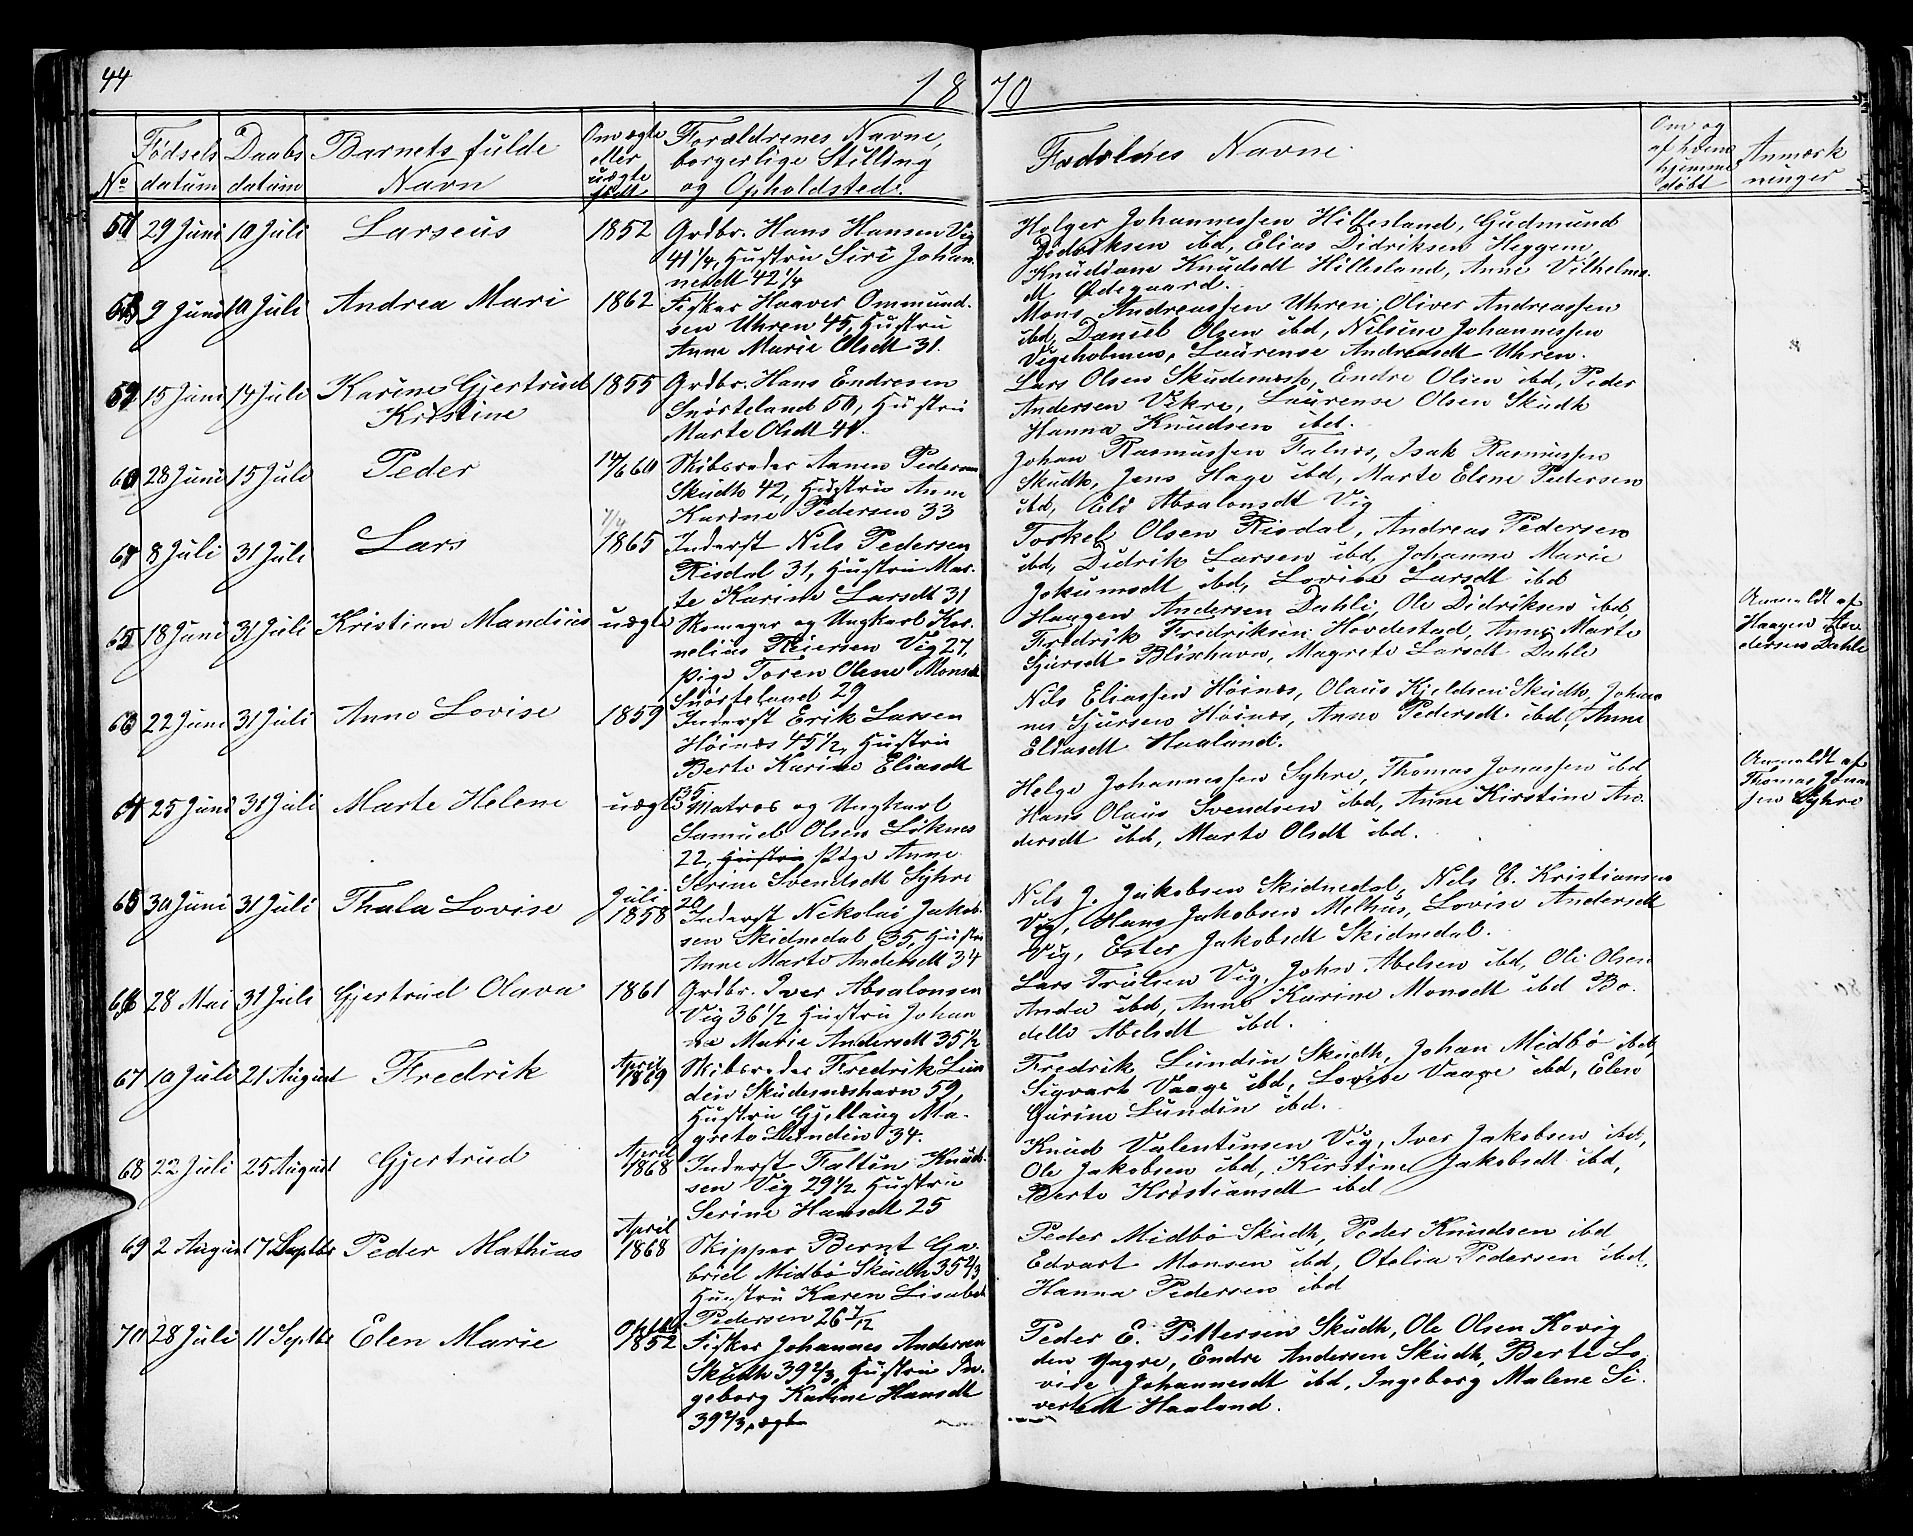 44
1870
No
Fødsels datum
Daabs datum
Barnets fulde Navn
Om ægte eller uægte født
Forældrenes Navne, borgerlige Stilling og Opholdsted.
Fadernes Navne
Om og af hvem hjemme døbt
Anmærkninger
57 29 Juni 10 Juli Larseus 1852
Grdbr. Hans Hansen Vig
41 1/4, Hustru Siri Johan
nesdt 42 1/4
Holger Johannessen Hillesland, Gudmund
Didriksen ibd, Elias Didriksen Heggem,
Knudiane Knudsdt Hillesland, Anne Vilhelms
dt Ødegaard.
58 9 Juni 10 Juli Andrea Mari 1862
Fisker Haaver Ommund-
sen Uhren 45, Hustru
Anne Marie Olsdt 31.
Mons Andreassen Uhren, Oliver Andreassen
ibd, Daniel Olsen ibd, Nilsine Johannessen
Vigeholmen, Laurense Andreasdt Uhren.
59 15 Juni 14 Juli Karine Gjertrud
Kristine 1855
Grdbr. Hans Endresen
Snørteland 50, Hustru
Marte Olsdt 41.
Lars Olsen Skudesnesh, Endre Olsen ibd, Peder
Andersen Vikre, Laurense Olsen Skudh
Hanna Knudsen ibd.
60 28 Juni 15 Juli Peder 14/6 60
Skibsreder Aanen Pedersen
Skudh 42, Hustru Anne
Karine Pedersen 33
Johan Rasmussen Falnes, Isak Rasmussen
Skudh, Jens Hage ibd, Marte Elene Pedersen
ibd, Eli Absalonsdt Vig
61 8 Juli 31 Juli Lars 7/4 1865
Inderst Nils Pedersen
Risdal 31, Hustru Mar-
te Karine Larsdt 31
Torkel Olsen Risdal, Andreas Pedersen
ibd, Didrik Larsen ibd, Johanne Marie
Jokumsdt ibd, Lovise Larsdt ibd
62 18 Juni 31 Juli Kristian Mandius uægte
Skomager og Ungkarl Kor-
nelius Reiersen Vig 27,
Pige Toren Olene Monsdt
Snørteland 29
Haagen Andersen Dahle, Ole Didriksen ibd,
Fredrik Fredriksen Hovdestad, Anne Marte
Sjursdt Blixhavn, Magrete Larsdt Dahle
Anmeldt af
Haagen An
dersen Dahle
63 22 Juni 31 Juli Anne Lovise 1859
Inderst Erik Larsen
Høines 45 1/2, Hustru
Berte Karine Eliasdt
35
Nils Eliassen Høines, Olaus Kjeldsen Skudh, Johan
nes Sjursen Høines, Anne Pedersdt ibd, Anne
Eliasdt Haaland.
64 25 Juni 31 Juli Marte Helene uægte
Matros og Ungkarl
Samuel Olsen Liknes
22, Hustru Pige Anne
Serine Svendsdt Syhre
20
Helge Johannessen Syhre, Thomas Jonassen ibd
Hans Olaus Svendsen ibd, Anne Kirstine An-
dersdt ibd, Marte Olsdt ibd.
Anmeldt af
Thomas Jonas
sen Syhre
65 30 Juni 31 Juli Thala Lovise Juli 1858
Inderst Nikolai Jakob-
sen Skidnedal 35, Hustru
Anne Marte Andersdt 34
Nils J. Jakobsen Skidnedal, Nels Kristiansen
Vig, Hans Jakobsen Melhus, Lovise Andersdt
Vig, Ester Jakobsdt Skidnedal.
66 28 Mai 31 Juli Gjertrud Olava 1861
Grdbr. Iver Absalonsen
Vig 36 1/2 Hustru Johan
ne Marie Andersdt 35 1/2
Lars Trulsen Vig, John Abelsen ibd, Ole Olsen
Anda ibd, Anne Karine Monsdt ibd Bo-
delle Abelsdt ibd.
67 10 Juli 21 August Fredrik April 1869
Skibsreder Fredrik Lun
din Skudesneshavn 59,
Hustru Gjellaug Ma-
grete Lundin 34.
Fredrik Lundin Skudh, Johan Midbø ibd,
Sigvart Vaage ibd, Lovise Vaage ibd, Elen
Gurine Lundin ibd.
68 22 Juli 25 August Gjertrud April 1868
Inderst Faltin Knud-
sen Vig 29 1/2 Hustru
Serine Hansdt 25
Knud Valentinsen Vig, Iver Jakobsen ibd,
Ole Jakobsen ibd, Kirstine Jakobsdt ibd,
Berte Kristiansdt ibd
69 2 August 17 Septbr Peder Mathias April 1868
Skipper Bernt Ga-
briel Midbø Skudh 35 2/3
Hustru Karen Lisabet
Pedersen 26 7/12
Peder Midbø Skudh, Peder Knudsen ibd
Edvart Monsen ibd, Otelia Pedersen ibd,
Hanna Pedersen ibd
70 28 Juli 11 Septbr Elen Marie Oktbr 1852
Fisker Johannes Andersen
Skudh 39 2/3, Hustru In-
geborg Karine Hansdt
39 2/3, ægte
Peder E. Pettersen Skudh, Ole Olsen Kovig
den yngre, Endre Andersen Skudh, Berte Lo-
vise Johannesdt ibd, Ingeborg Malene Si-
vertsdt Haaland.